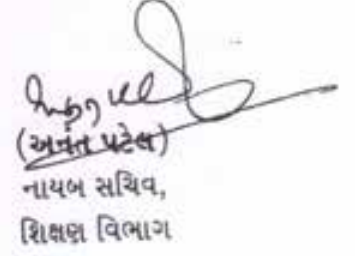 (અનંત પટેલ)
નાયબ સચિવ,
શિક્ષણ વિભાગ